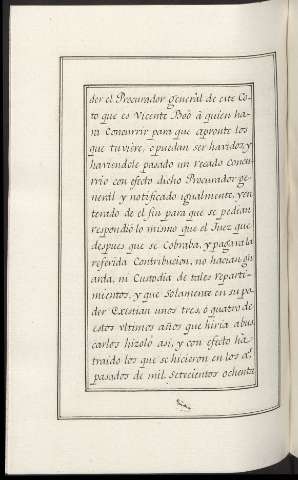 der el Procurador generàl de este Co-
to que es Vicente Boò à quien ha-
ra Concurrir para que apronte los
que tuviere, o puedan ser havidos, y
haviendole pasado un recado Concu-
rrio con efecto dicho Procurador ge-
neral y notificado igualmente, yen
terado de el fin para que se pedian
respondiò lo mismo que el Juez que
despues que se Cobraba, y pagava la
referida Contribucion, no hacian gu
arda, ni Custodia de tales reparti-
mientos, y que Solamente en su po
der Existian unos tres, ò quatro de
estos vltimos años que hiria abus
carlos hizolo asi, y con efecto hà
traido los que se hicieron en los a.s
pasados de mil, Setecientos ochenta